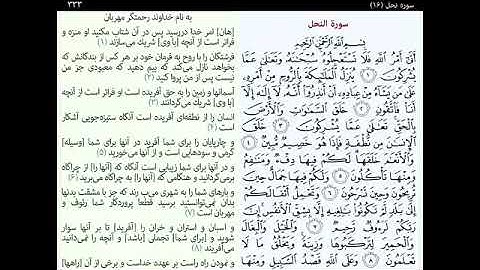 سوره نحل (۱۶)
۳۳۳
سورة النحل
بِسْمِ اللَّهِ الرَّحْمَٰنِ الرَّحِيمِ
أَتَىٰ أَمْرُ اللَّهِ فَلَا تَسْتَعْجِلُوهُ سُبْحَانَهُ وَتَعَالَىٰ عَمَّا
يُشْرِكُونَ ۝١ يُنَزِّلُ الْمَلَائِكَةَ بِالرُّوحِ مِنْ أَمْرِهِ
عَلَىٰ مَن يَشَاءُ مِنْ عِبَادِهِ أَنْ أَنذِرُوا أَنَّهُ لَا إِلَٰهَ إِلَّا
أَنَا فَاتَّقُونِ ۝٢ خَلَقَ السَّمَاوَاتِ وَالْأَرْضَ
بِالْحَقِّ تَعَالَىٰ عَمَّا يُشْرِكُونَ ۝٣ خَلَقَ
الْإِنسَانَ مِن نُّطْفَةٍ فَإِذَا هُوَ خَصِيمٌ مُّبِينٌ ۝٤
وَالْأَنْعَامَ خَلَقَهَا لَكُمْ فِيهَا دِفْءٌ وَمَنَافِعُ
وَمِنْهَا تَأْكُلُونَ ۝٥ وَلَكُمْ فِيهَا جَمَالٌ حِينَ
تُرِيحُونَ وَحِينَ تَسْرَحُونَ ۝٦ وَتَحْمِلُ أَثْقَالَكُمْ
إِلَىٰ بَلَدٍ لَّمْ تَكُونُوا بَالِغِيهِ إِلَّا بِشِقِّ الْأَنفُسِ إِنَّ
رَبَّكُمْ لَرَءُوفٌ رَّحِيمٌ ۝٧ وَالْخَيْلَ وَالْبِغَالَ
وَالْحَمِيرَ لِتَرْكَبُوهَا وَزِينَةً وَيَخْلُقُ مَا لَا
تَعْلَمُونَ ۝٨ وَعَلَى اللَّهِ قَصْدُ السَّبِيلِ وَمِنْهَا
به نام خداوند رحمتگر مهربان
[هان] امر خدا دررسید پس در آن شتاب مکنید او منزه و
فراتر است از آنچه [با وی] شریک می‌سازند (۱)
فرشتگان را با روح به فرمان خود بر هر کس از بندگانش که
بخواهد نازل می‌کند که بیم دهید که معبودی جز من
نیست پس از من پروا کنید (۲)
آسمانها و زمین را به حق آفریده است او فراتر است از آنچه
[با وی] شریک می‌گردانند (۳)
انسان را از نطفه‌ای آفریده است آنگاه ستیزه‌جویی آشکار
است (۴)
و چارپایان را برای شما آفرید در آنها برای شما [وسیله]
گرمی و سودهایی است و از آنها می‌خورید (۵)
و در آنها برای شما زیبایی است آنگاه که [آنها را] از چراگاه
برمی‌گردانید و هنگامی که [آنها را] به چراگاه می‌برید (۶)
و بارهای شما را به شهری می‌برند که جز با مشقت بدنها
بدان نمی‌توانستید برسید قطعا پروردگار شما رئوف و
مهربان است (۷)
و اسبان و استران و خران را [آفرید] تا بر آنها سوار
شوید و [برای شما] تجملی [باشد] و آنچه را نمی‌دانید
می‌آفریند (۸)
و نمودن راه راست بر عهده خداست و برخی از آن [راهها]